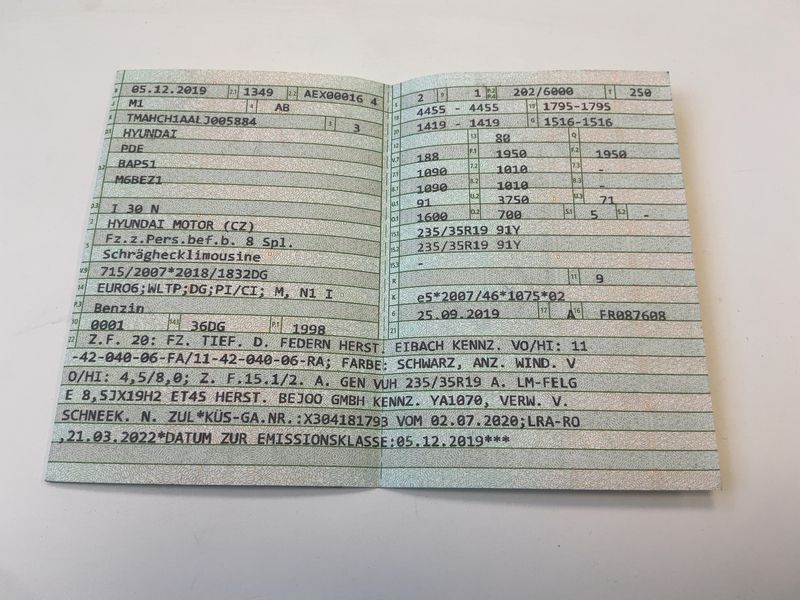 05.12.2019 1349 AEX00016 4
M1 AB
TMAHCH1AALJ005884 3
HYUNDAI
PDE
BAPS1
M6BEZ1
I 30 N
HYUNDAI MOTOR (CZ)
Fz.z.Pers.bef.b. 8 Spl.
Schräghecklimousine
715/2007*2018/1832DG
EURO6;WLTP;DG;PI/CI; M, N1 I
Benzin
0001 36DG P.1 1998
2 1 202/6000 T 250
4455 - 4455 1795-1795
1419 - 1419 G 1516-1516
80 Q
188 1950 1950
1090 1010 -
1090 1010 -
91 3750 71
1600 700 5 -
235/35R19 91Y
235/35R19 91Y
-
R 11 9
K e5*2007/46*1075*02
6 25.09.2019 17 A 16 FR087608
21
22 Z.F. 20: FZ. TIEF. D. FEDERN HERST. EIBACH KENNZ. VO/HI: 11
-42-040-06-FA/11-42-040-06-RA; FARBE: SCHWARZ, ANZ. WIND. V
O/HI: 4,5/8,0; Z. F.15.1/2. A. GEN VUH 235/35R19 A. LM-FELG
E 8,5JX19H2 ET45 HERST. BEJOO GMBH KENNZ. YA1070, VERW. V.
SCHNEEK. N. ZUL*KÜS-GA.NR.:X304181793 VOM 02.07.2020;LRA-RO
,21.03.2022*DATUM ZUR EMISSIONSKLASSE:05.12.2019***